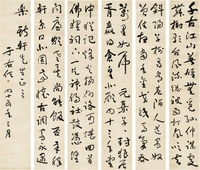 千古江山英雄無覓孫仲謀
處舞榭歌臺風流總被雨打風吹去
斜陽草樹尋常巷陌人道寄奴
曾住想當年金戈鐵馬氣吞
萬里如虎元嘉草草封狼居
胥贏得倉皇北顧四十三年望
中猶記烽火揚州路可堪回首
佛狸祠下一片神鴉社鼓憑誰
問廉頗老矣尚能飯否
辛稼軒京口北固亭懷古調永遇
樂
軒先生正之
于右任